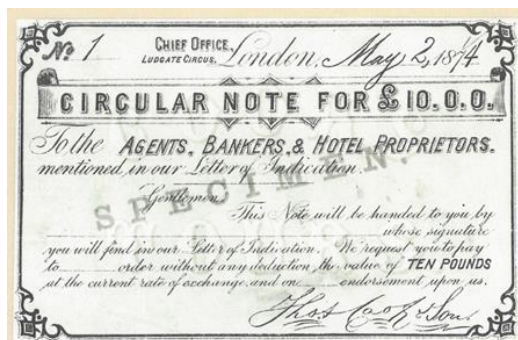 No 1 CHIEF OFFICE, LUDGATE CIRCUS, London, May 2, 1874
CIRCULAR NOTE FOR £10.0.0.
To the AGENTS, BANKERS, & HOTEL PROPRIETORS.
mentioned in our Letter of Indication.
SPECIMEN
Gentlemen
This Note will be handed to you by
whose signature
you will find in our Letter of Indication. We request you to pay
to order without any deduction, the value of TEN POUNDS
at the current rate of exchange, and one endorsement upon us.
Thos Cook & Son